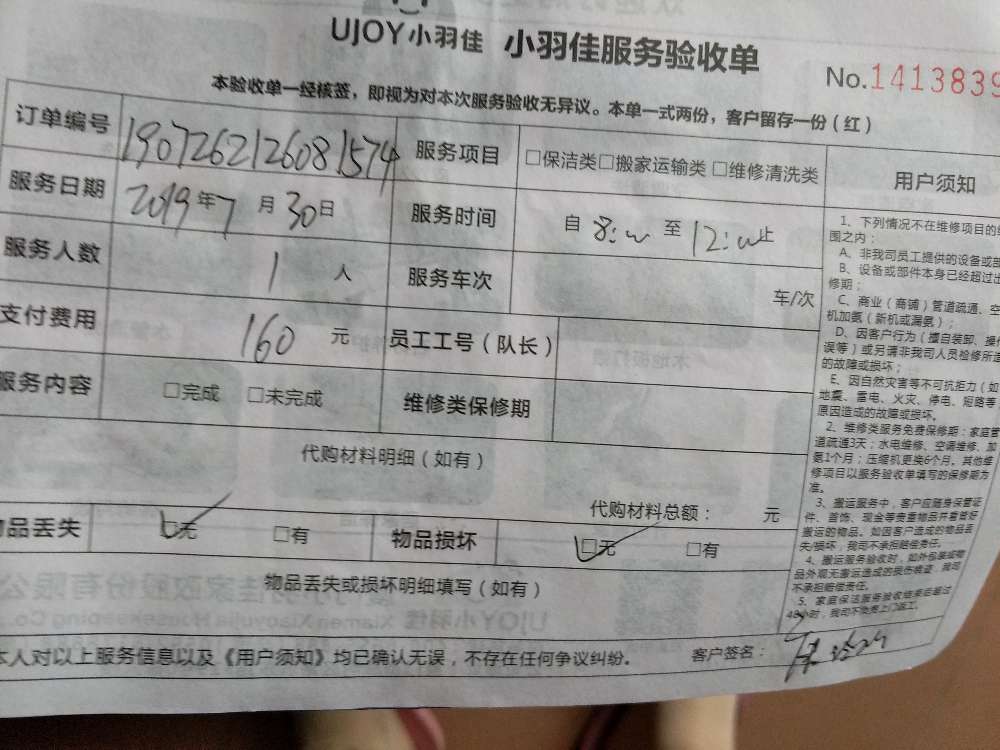 UJOY小羽佳 小羽佳服务验收单
No.1413839
本验收单一经核签，即视为对本次服务验收无异议。本单一式两份，客户留存一份（红）
订单编号 1907262126081574 服务项目 □保洁类□搬家运输类 □维修清洗类
服务日期 2019年7月30日 服务时间 自 8: 至 12: 止
服务人数 1 人 服务车次 车/次
支付费用 160 元 员工工号（队长）
服务内容 □完成 □未完成 维修类保修期
代购材料明细（如有）
代购材料总额： 元
物品丢失 □无 □有 物品损坏 □无 □有
物品丢失或损坏明细填写（如有）
本人对以上服务信息以及《用户须知》均已确认无误，不存在任何争议纠纷。 客户签名：
用户须知
1、下列情况不在维修项目的
围之内：
A、非我司员工提供的设备或部
B、设备或部件本身已经超过出
修期；
C、商业（商铺）管道疏通、空
机加氨（新机或漏氨）；
D、因客户行为（擅自装卸、操
误等）或另请非我司人员检修所造
的故障或损坏；
E、因自然灾害等不可抗拒力（如
地震、雷电、火灾、停电、短路等
原因造成的故障或损坏。
2、维修类服务免费保修期：家庭管
道疏通3天；水电维修、空调维修、加
氨1个月；压缩机更换6个月。其他维
修项目以服务验收单填写的保修期为
准。
3、搬运服务中，客户应随身保管证
件、首饰、现金等贵重物品并看管好
搬运的物品。如因客户造成的物品丢
失/损坏，我司不承担赔偿责任。
4、搬运服务验收时，如外包装或物
品外观无搬运造成的损伤痕迹，我司
不承担赔偿责任。
5、家庭保洁服务验收结束后超过
48小时，我司不免费上门返工。